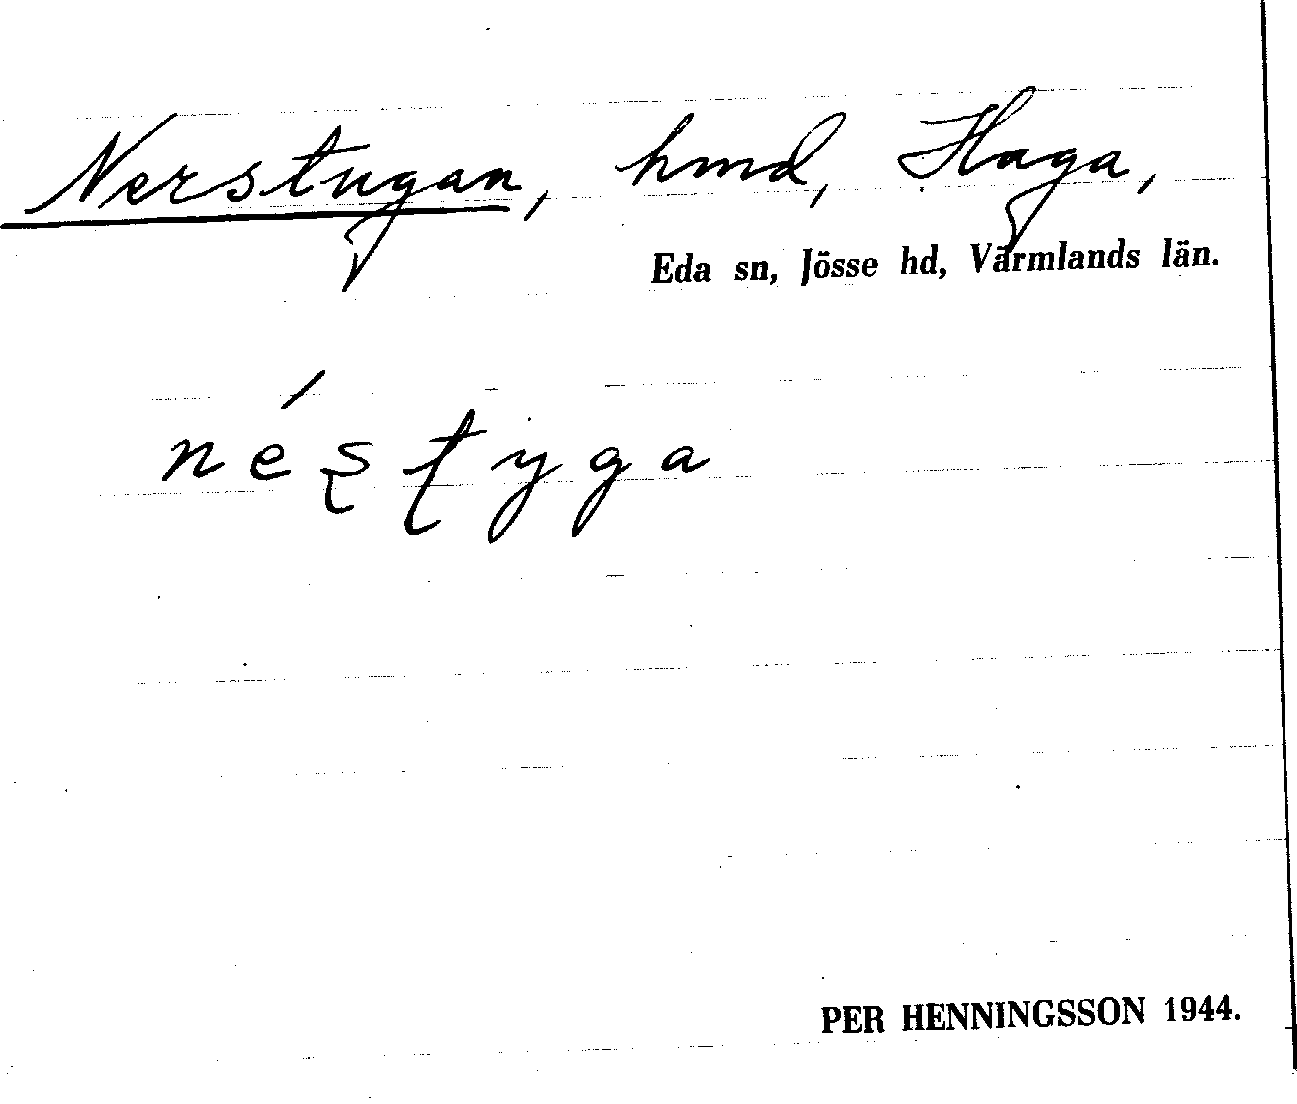 Nerstugan, hmd, Haga,
Eda sn, Jösse hd, Värmlands län.
néʂʈyga
PER HENNINGSSON 1944.